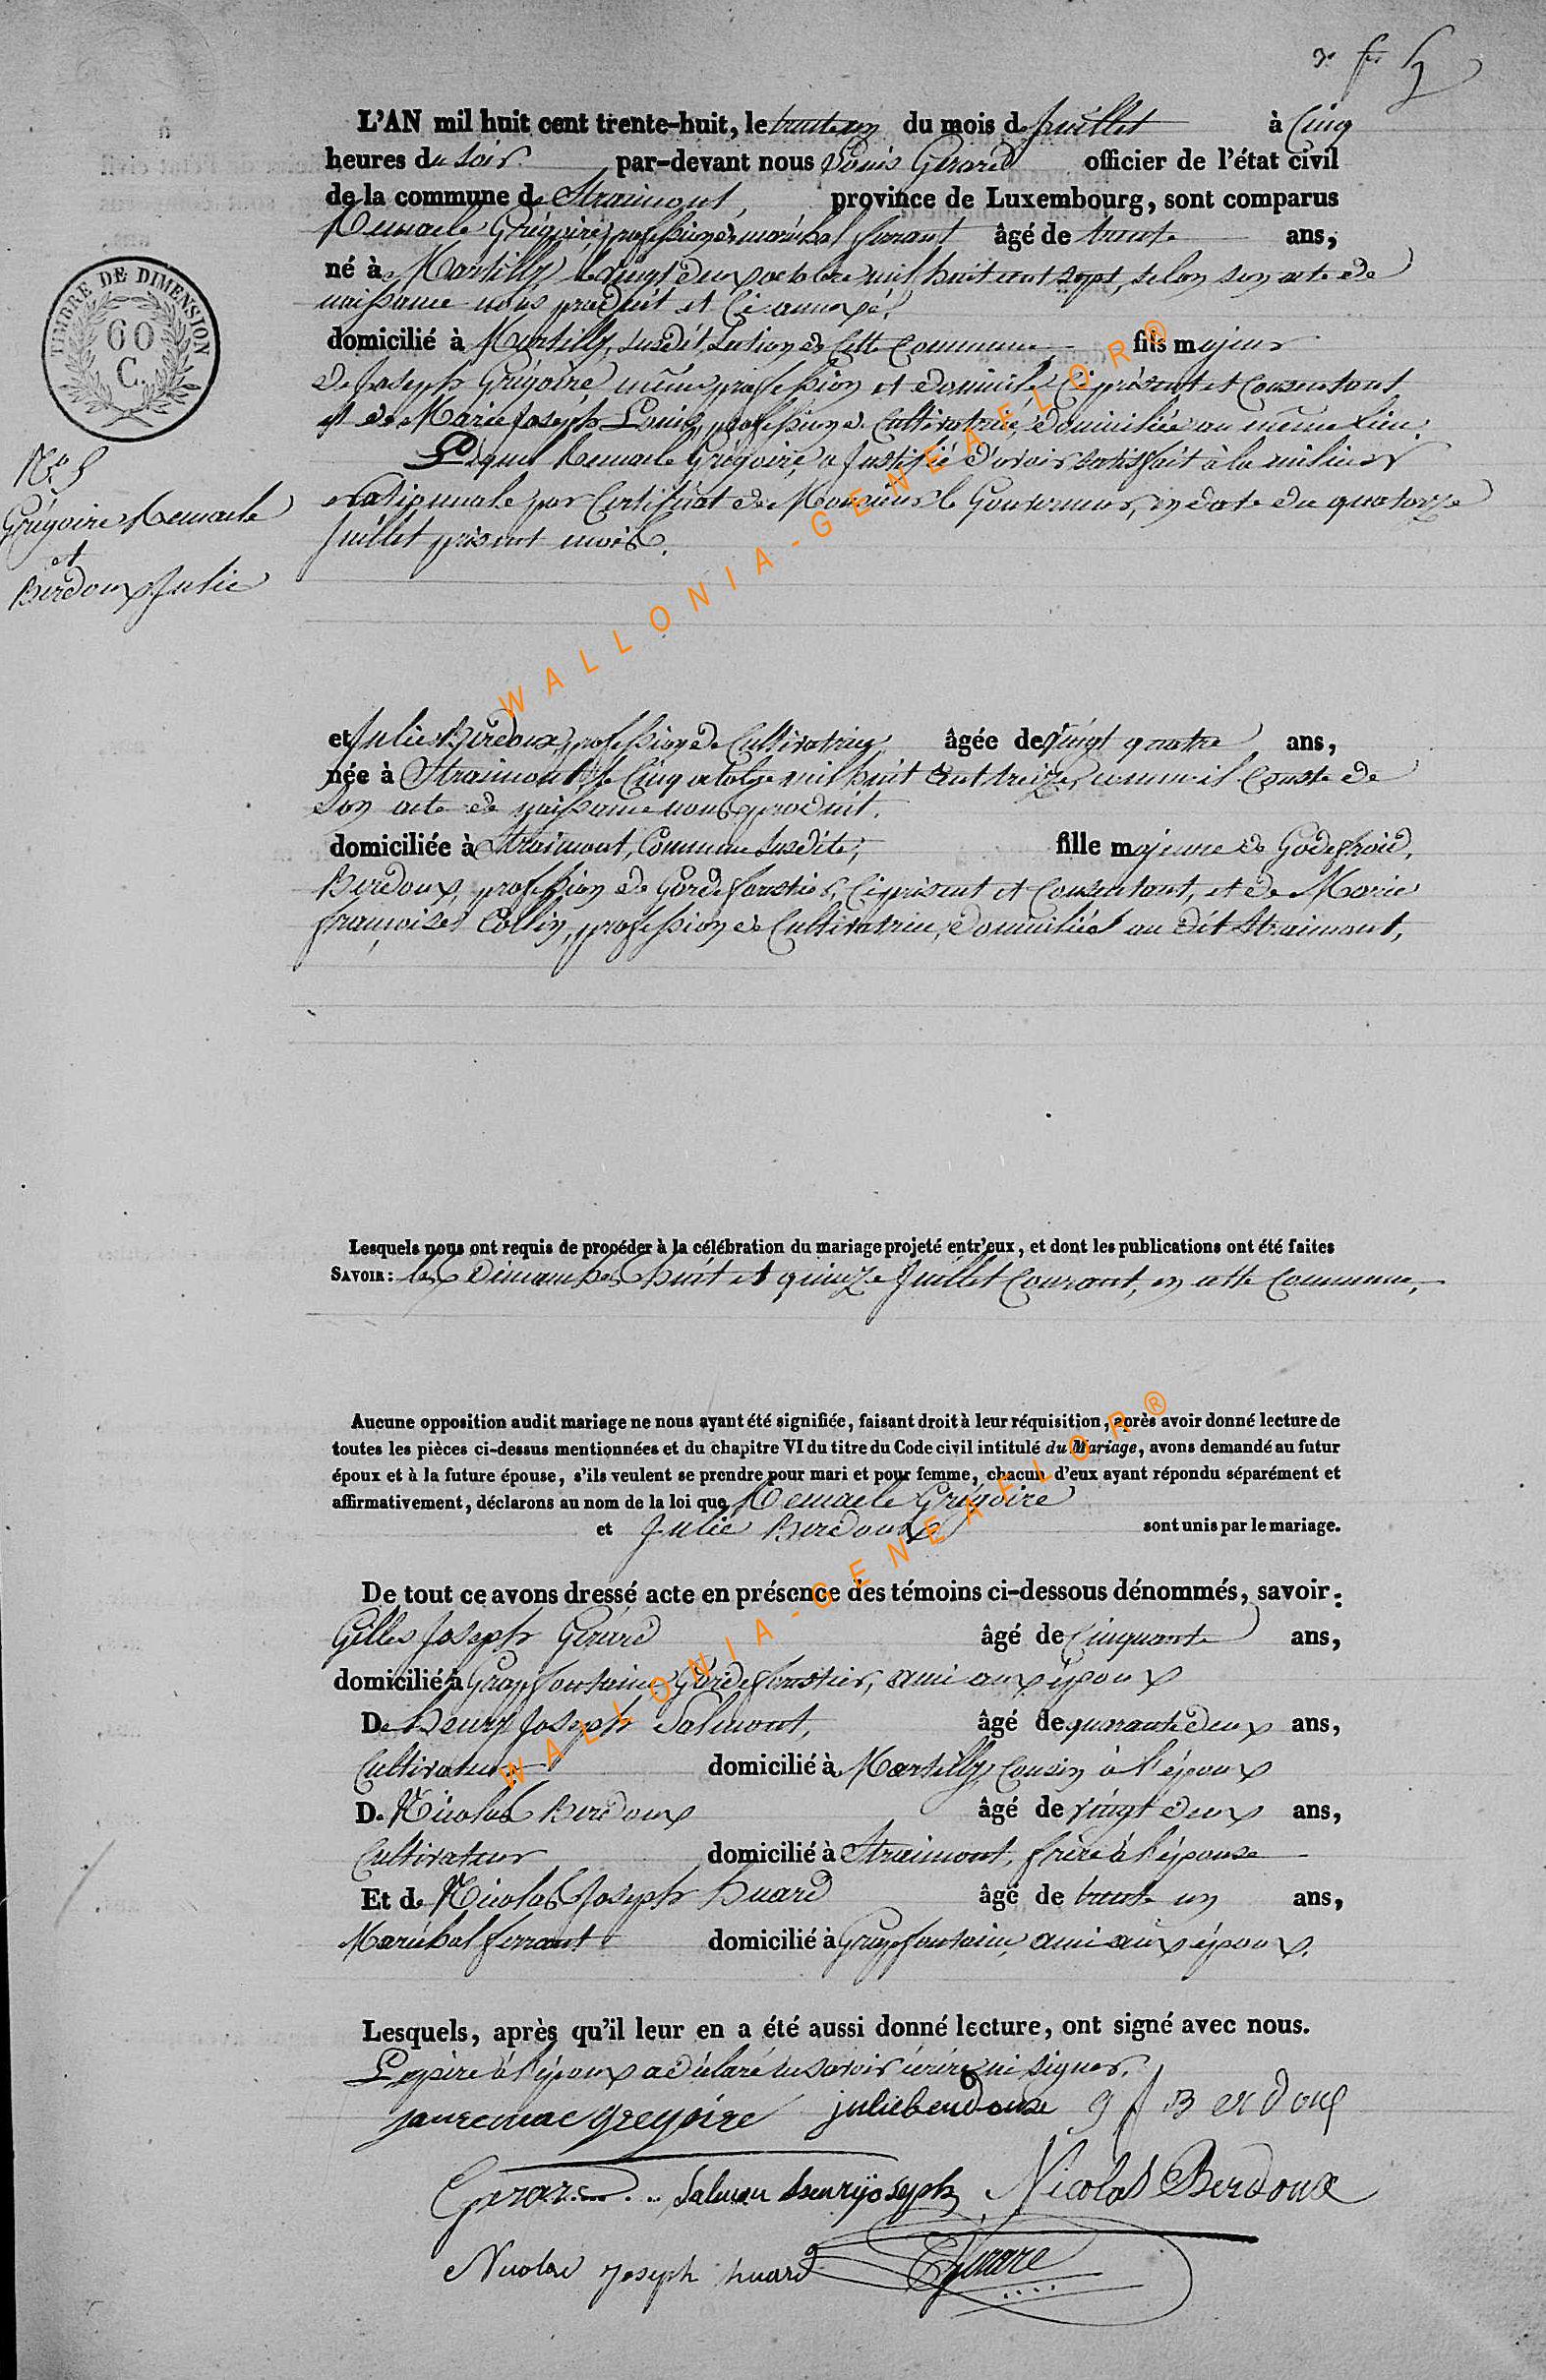 L'AN mil huit cent trente-huit, le trente un du mois de Juillet à Cinq
heures du soir. par-devant nous Louis Gerard officier de l'état civil
de la commune de Straimont, province de Luxembourg, sont comparus
Remacle Grégoire, profession de maréchal ferrant âgé de trente ans,
né à Martilly, le vingt deux octobre mil huit cent sept, selon son acte de
naissance nous produit et ci annexé,
domicilié à Martilly, susdit, section de cette Commune, fils majeur
de Joseph Grégoire même profession et domicile, ci présent et consentant
et de Marie Joseph Louis, profession de Cultivatrice, domiciliée au même lieu
Lequel Remacle Grégoire, a justifié d'avoir satisfait à la milice
nationale par Certificat de Monsieur le Gouverneur, en date du quatorze
Juillet présent mois.
TIMBRE DE DIMENSION
60
C.
N.o 5
Grégoire Remacle
et
Berdoux Julie
et Julie Berdoux, profession de Cultivatrice, âgée de vingt quatre ans,
née à Straimont, le Cinq octobre mil huit cent treize, comme il conste de
son acte de naissance nous produit.
domiciliée à Straimont, Commune susdite, fille majeure de Godefroid
Berdoux, profession de garde forestier, ci présent et consentant, et de Marie
françoise Collin, profession de Cultivatrice, domiciliés au dit Straimont,
Lesquels nous ont requis de procéder à la célébration du mariage projeté entr'eux, et dont les publications ont été faites
SAVOIR : les Dimanches huit et quinze Juillet Courant, en cette Commune,
Aucune opposition audit mariage ne nous ayant été signifiée, faisant droit à leur réquisition, après avoir donné lecture de
toutes les pièces ci-dessus mentionnées et du chapitre VI du titre du Code civil intitulé du Mariage, avons demandé au futur
époux et à la future épouse, s'ils veulent se prendre pour mari et pour femme, chacun d'eux ayant répondu séparément et
affirmativement, déclarons au nom de la loi que Remacle Grégoire
et Julie Berdoux sont unis par le mariage.
De tout ce avons dressé acte en présence des témoins ci-dessous dénommés, savoir :
Gilles Joseph Gérard âgé de Cinquante ans,
domicilié à Grapfontaine, Garde forestier, ami aux époux
De Henry Joseph Salmont, âgé de quarante deux ans,
Cultivateur domicilié à Martilly, Cousin à l'époux
De Nicolas Berdoux âgé de vingt deux ans,
Cultivateur domicilié à Straimont, frère à l'épouse
Et de Nicolas Joseph huard âgé de trente un ans,
Maréchal ferrant domicilié à Grapfontaine, ami aux époux.
Lesquels, après qu'il leur en a été aussi donné lecture, ont signé avec nous.
Le père à l'époux a déclaré ne savoir écrire ni signer.
gregoire julie berdoux g f Berdoux
Gerard salmon henry joseph Nicolas Berdoux
Nicolas Joseph huard
WALLONIA-GENEAFLOR®
WALLONIA-GENEAFLOR®